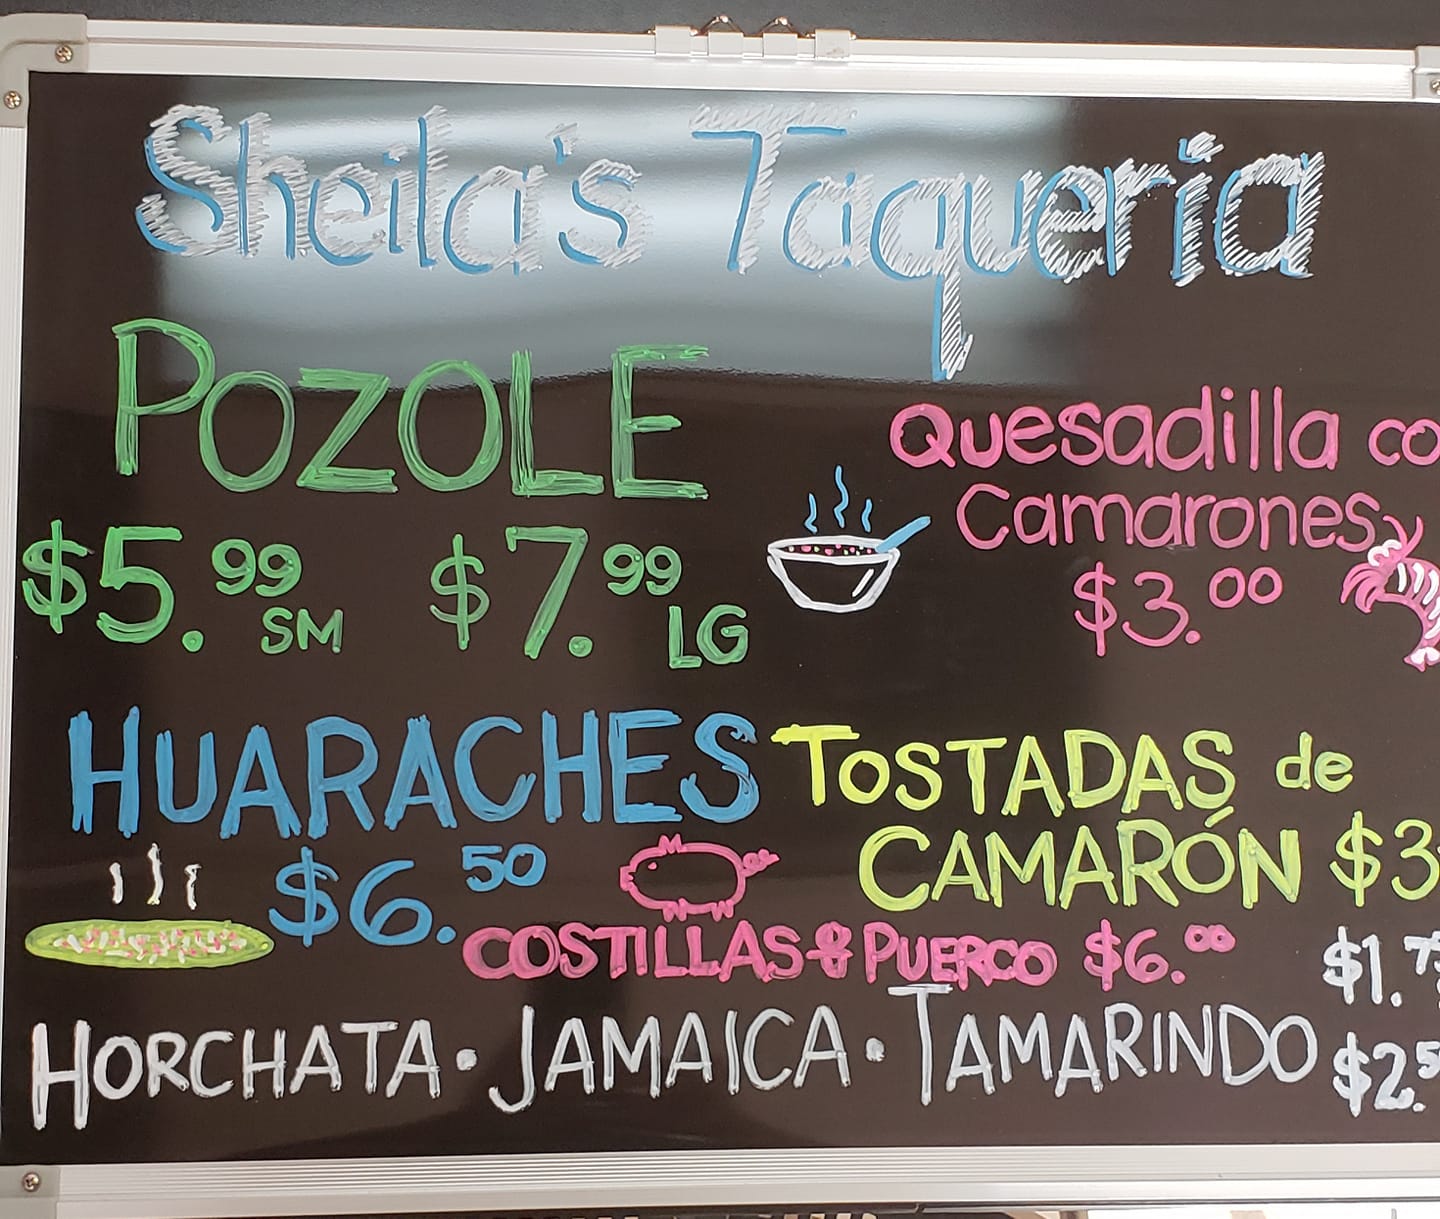 Sheila's Taqueria
POZOLE
$5.99 SM $7.99 LG
Quesadilla co
Camarones
$3.00
HUARACHES
$6.50
TOSTADAS de
CAMARÓN $3
COSTILLAS d PUERCO $6.00
$1.75
HORCHATA · JAMAICA · TAMARINDO $2.5